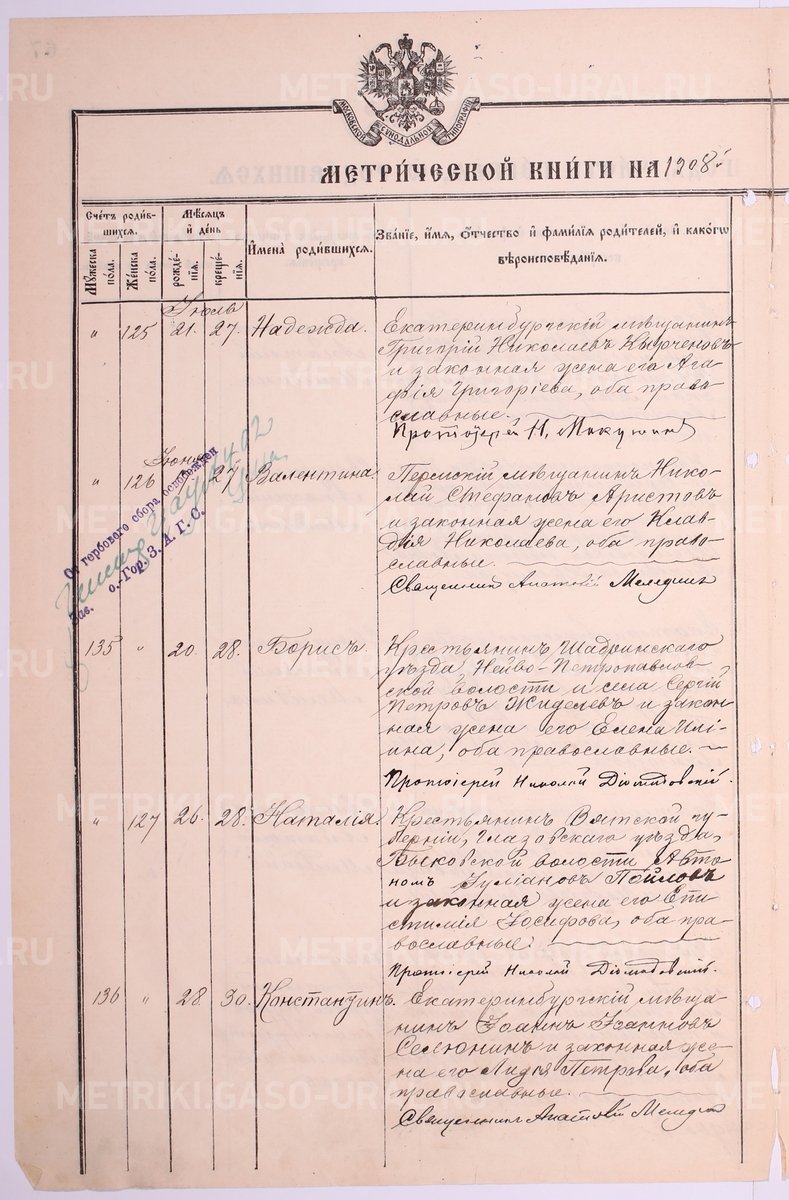 МОСКОВСКОЙ СУНОДАЛЬНОЙ ТИПОГРАФІИ
МЕТРИЧЕСКОЙ КНИГИ НА 1908 г.
Счетъ родившихся.
Мужеска пола.
Женска пола.
Мѣсяцъ и день
рожденія.
крещенія.
Имена родившихся.
Званіе, имя, отчество и фамилія родителей, и какогω
вѣроисповѣданія.
Іюль
" 125 21. 27. Надежда. Екатеринбургскій мѣщанинъ
Григорій Николаевъ
и законная жена его Ага-
фія Григоріева, оба право-
славные.
Протоіерей Н.
Іюня
" 126 27 Валентина. Пермскій мѣщанинъ Нико-
лай Стефановъ Аристовъ
и законная жена его Клав-
дія Николаева, оба право-
славные.
Священникъ
От гербового сбора освобожден
Зав. о.-Гор. З. А. Г. С.
135 " 20. 28. Борисъ. Крестьянинъ Шадринскаго
уѣзда, Нейво-Петропавлов-
ской волости и села Сергій
Петровъ Жиделевъ и закон-
ная жена его Елена Илі-
ина, оба православные.
Протоіерей Николай Діомидовскій.
" 127 26. 28. Наталія. Крестьянинъ Вятской гу-
берніи, Глазовскаго уѣзда,
волости Авто-
номъ Іуліановъ Пойловъ
и законная жена его Епи-
стимія Іосифова, оба пра-
вославные.
Протоіерей Николай Діомидовскій.
136 " 28. 30. Константинъ. Екатеринбургскій мѣща-
нинъ Іоаннъ Іоанновъ
Селюнинъ и законная же-
на его Лидія Петрова, оба
православные.
Священникъ
METRIKI.GASO-URAL.RU